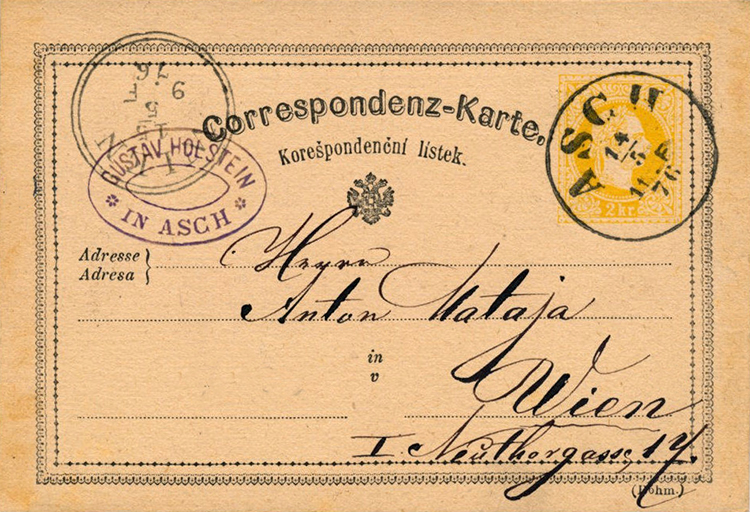 Correspondenz-Karte.
Korešpondenční lístek.
GUSTAV HOLSTEIN
IN ASCH
ASCH
14/5
76
2 kr
Adresse
Adresa
Herrn
Anton Mataja
in
v
Wien
I. Neuthorgasse, 17.
(Böhm.)